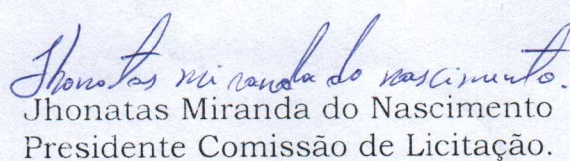 Jhonatas miranda do nascimento.
Jhonatas Miranda do Nascimento
Presidente Comissão de Licitação.